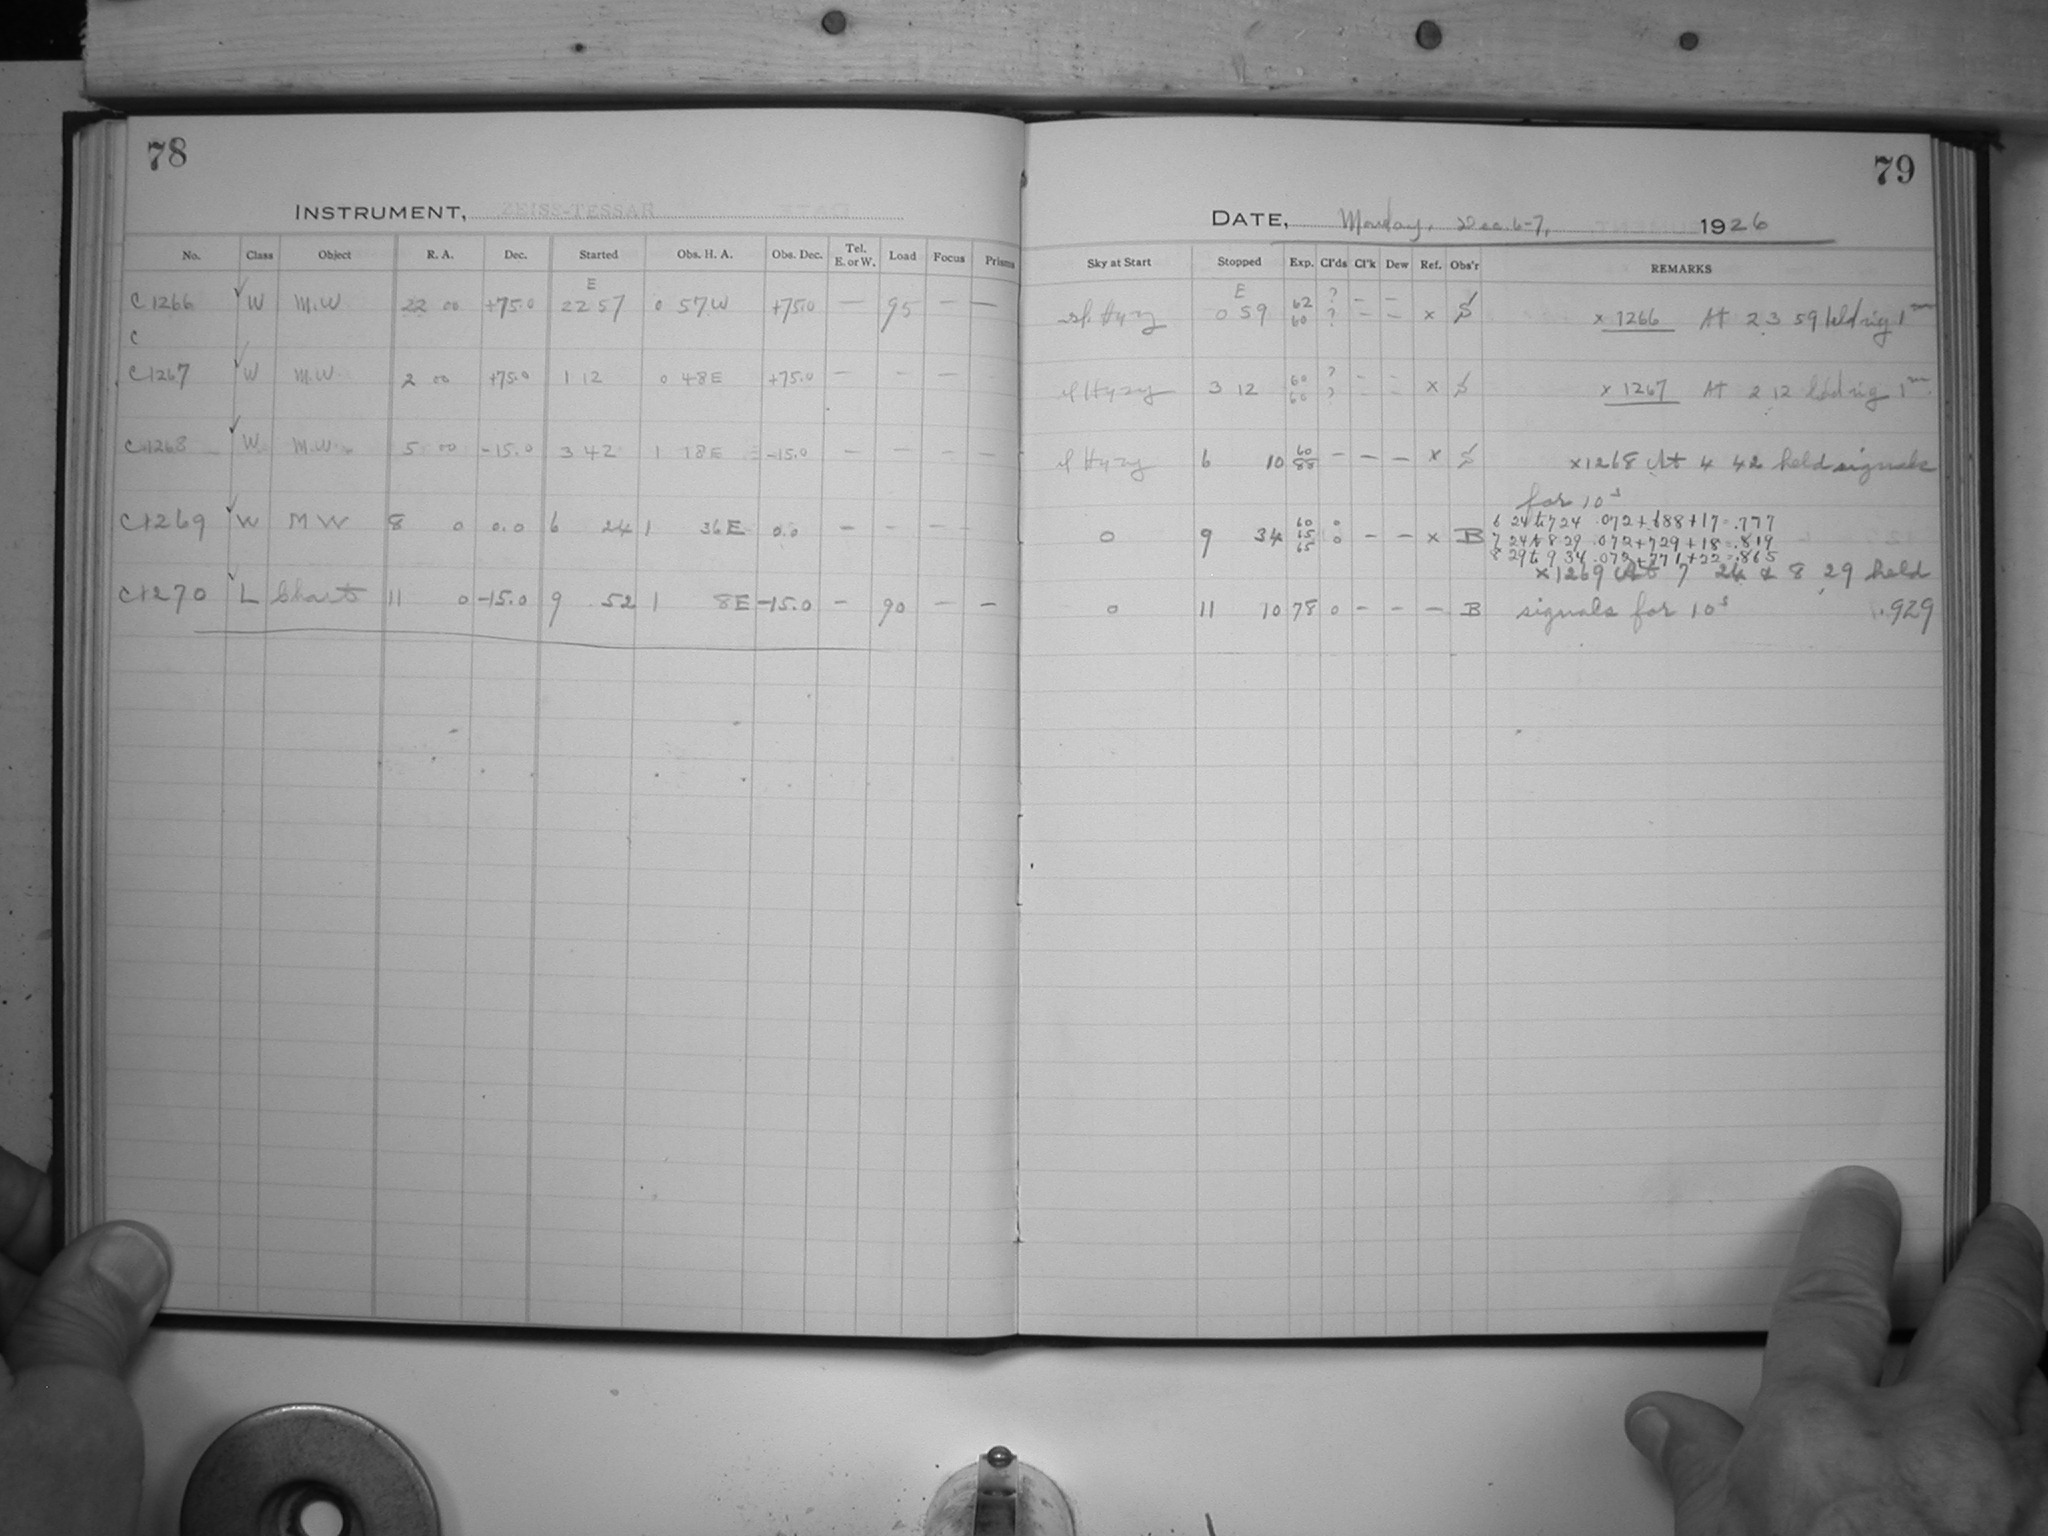 78
INSTRUMENT, ZEISS-TESSAR
No. Class Object R. A. Dec. Started Obs. H. A. Obs. Dec. Tel. E. or W. Load Focus Prisms
E
C1266 ✓ W M.W 22 00 +75.0 22 57 0 57 W +75.0 — 95 — —
C
C1267 ✓ W M.W 2 00 +75.0 1 12 0 48E +75.0 — — — —
C1268 ✓ W M.W. 5 00 -15.0 3 42 1 18E -15.0 — — — —
C1269 ✓ W M W 8 0 0.0 6 24 1 36E 0.0 — — — —
C1270 ✓ L Charts 11 0 -15.0 9 52 1 8E -15.0 — 90 — —
79
DATE, Monday, Dec. 6-7, 1926
Sky at Start Stopped Exp. Cl'ds Cl'k Dew Ref. Obs'r REMARKS
E
Hyzy 0 59 62 60 ? ? — — — — x x 1266 At 23 59 hld rig 1m
Hyzy 3 12 60 60 ? ? — — — — x x 1267 At 2 12 hld rig 1m
Hyzy 6 10 60 88 — — — x x1268 At 4 42 held signals
for 10s
0 9 34 60 65 65 0 0 — — x B 6 24 to 7 24 .072+.688+17=.777
7 24 to 8 29 .072+729+18=.819
8 29 to 9 34 .072+771+22=.865
x1269 At 7 24 & 8 29 held
0 11 10 78 0 — — — B signals for 10s .929